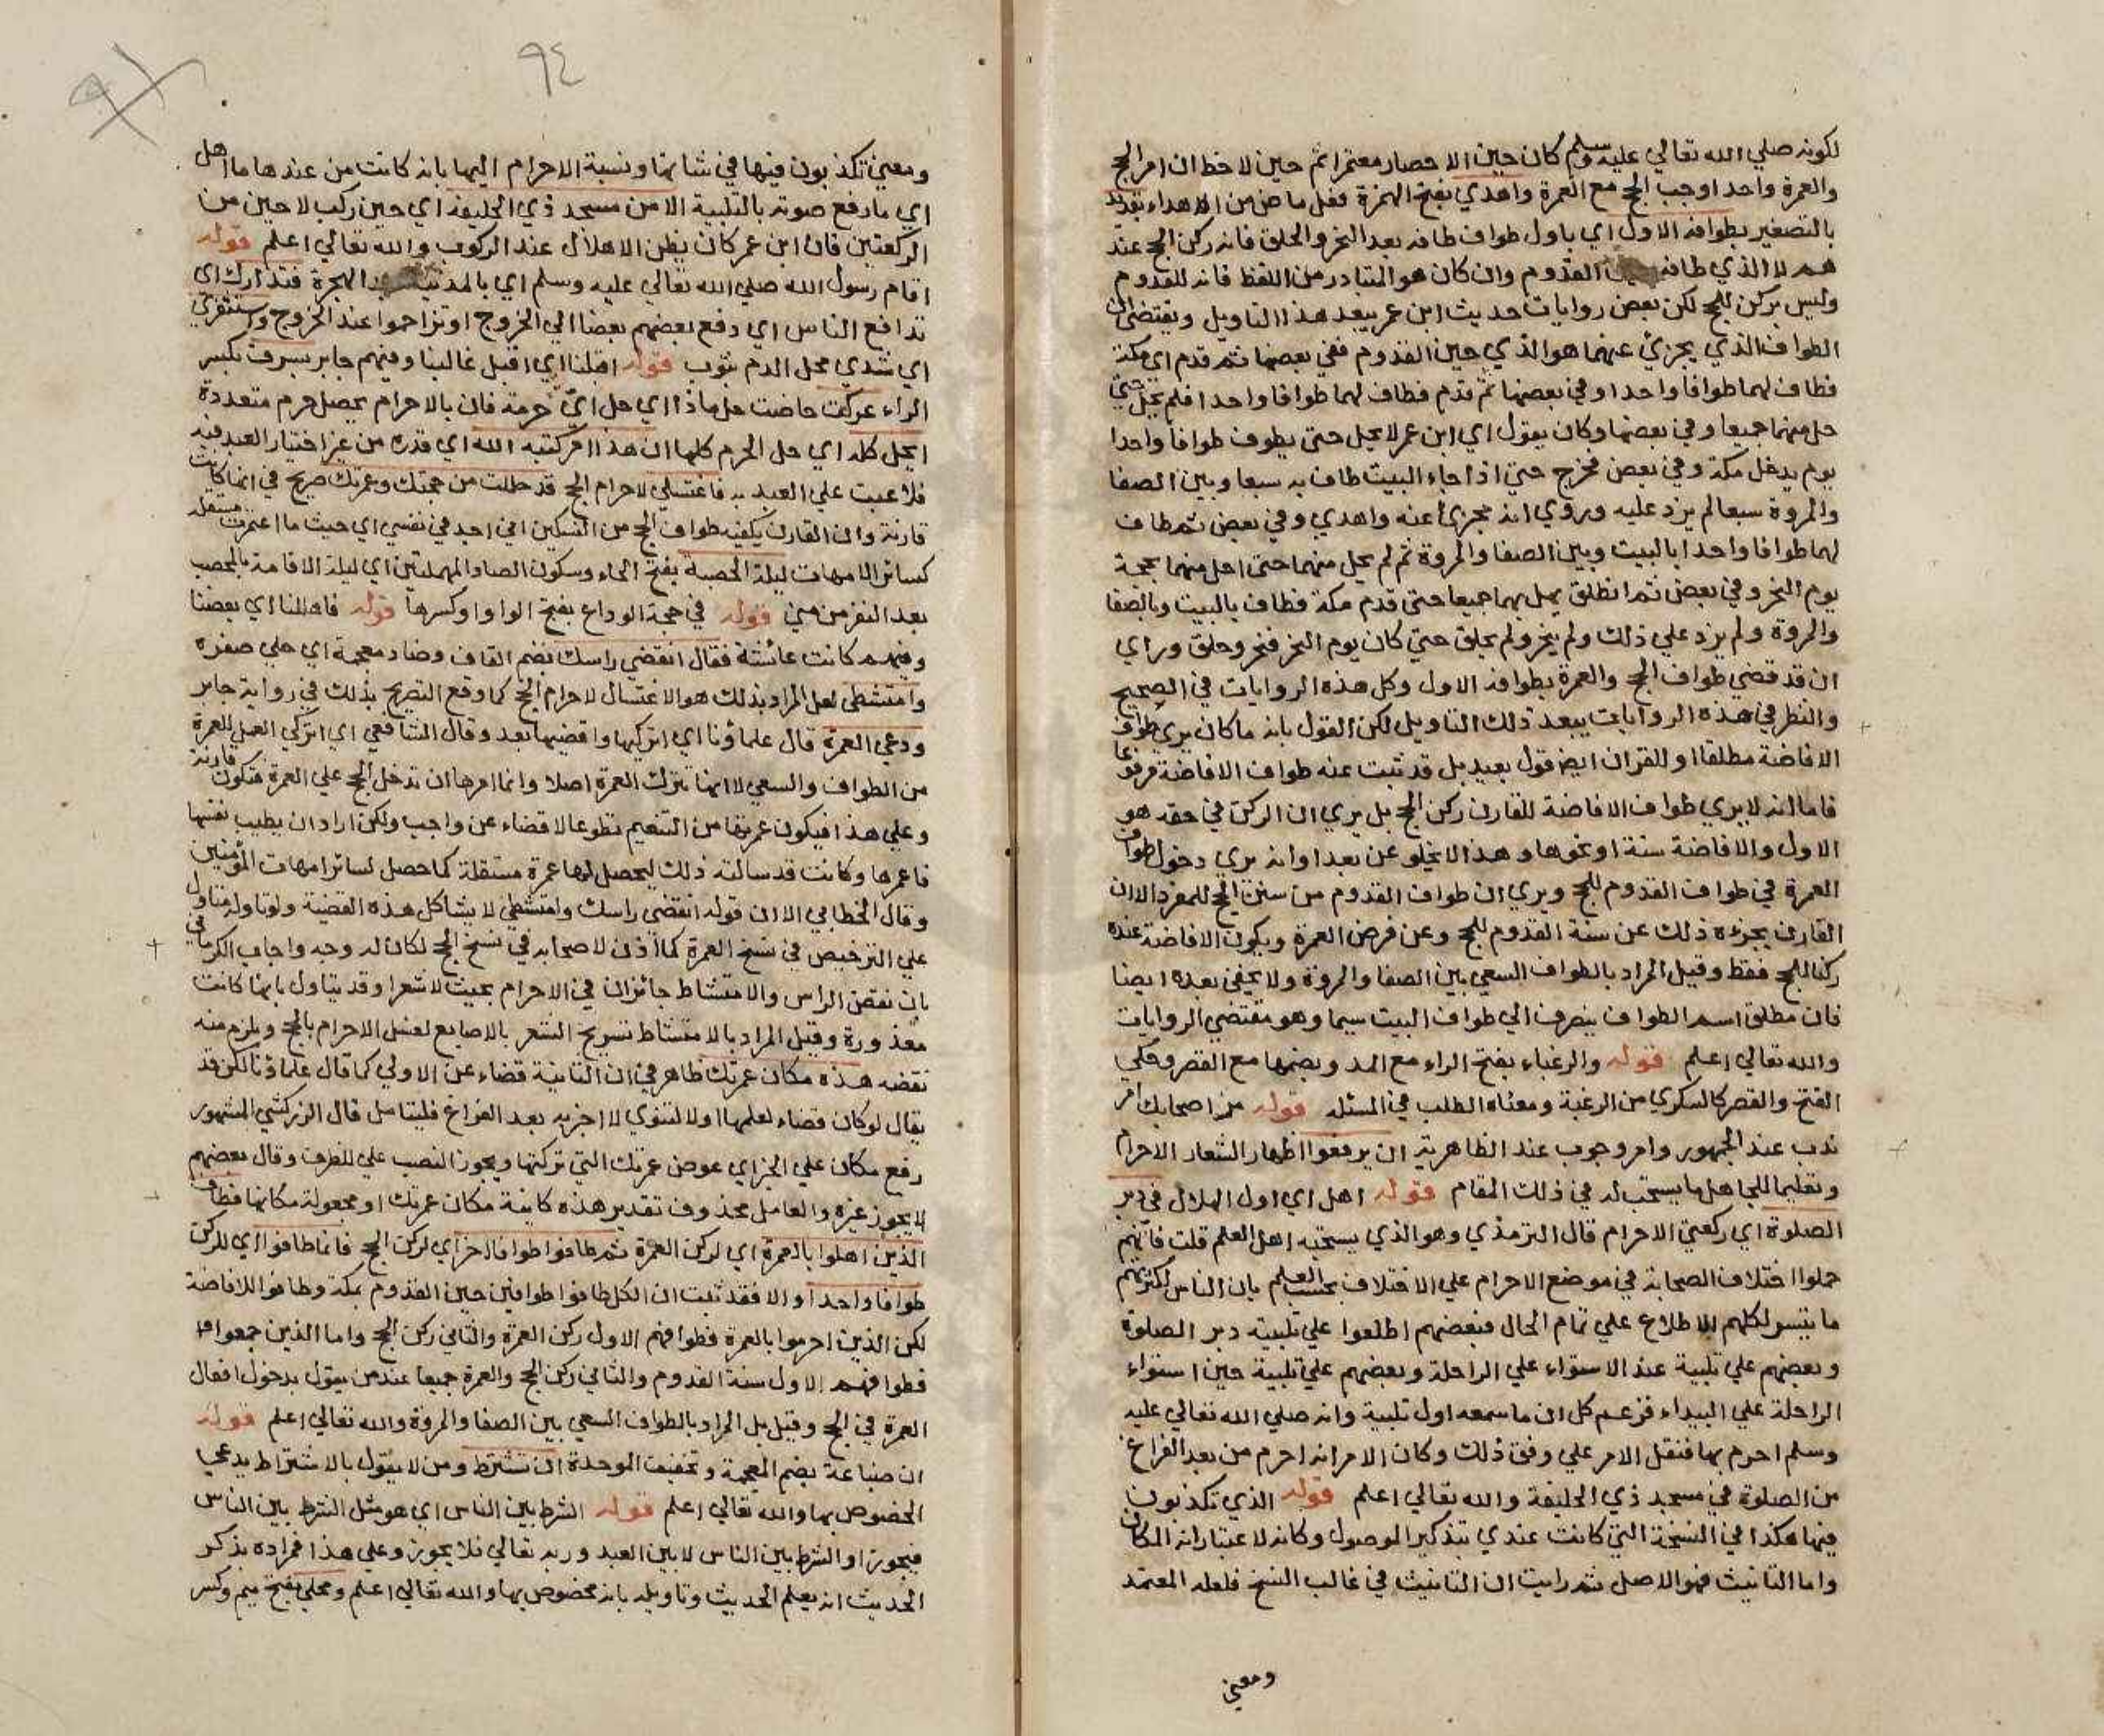 لكونه صلي الله تعالي عليه وسلم كان حين الاحصار معتمرا ثم حين لاحظ ان امر الحج
والعمرة واحد اوجب الحج مع العمرة واهدي بفتح الهمزة فعل ماض من الاهداء بقديد
بالتصغير بطوافه الاول اي باول طواف طافه بعد النحر والحلق فانه ركن الحج عند
هم لا الذي طافه حين القدوم وان كان هو المتبادر من اللفظ فانه للقدوم
وليس بركن للحج لكن بعض روايات حديث ابن عمر يبعد هذا التاويل ويقتضي ان
الطواف الذي يجزئ عنهما هو الذي حين القدوم ففي بعضها ثم قدم اي مكة
فطاف لهما طوافا واحدا وفي بعضها ثم قدم فطاف لهما طوافا واحدا فلم يحل حتي
حل منهما جميعا وفي بعضها وكان يقول اي ابن عمر لا يحل حتي يطوف طوافا واحدا
يوم يدخل مكة وفي بعض فخرج حتي اذا جاء البيت طاف به سبعا وبين الصفا
والمروة سبعا لم يزد عليه وروي انه مجزئ عنه واهدي وفي بعض ثم طاف
لهما طوافا واحدا بالبيت وبين الصفا والمروة ثم لم يحل منهما حتي احل منهما بحجة
يوم النحر وفي بعض ثم انطلق يهل بهما جميعا حتي قدم مكة فطاف بالبيت وبالصفا
والمروة ولم يزد علي ذلك ولم ينحر ولم يحلق حتي كان يوم النحر فنحر وحلق وراي
ان قد قضي طواف الحج والعمرة بطوافه الاول وكل هذه الروايات في الصحيح
والنظر في هذه الروايات يبعد ذلك التاويل لكن القول بانه ما كان يري طواف
الافاضة مطلقا او للقران ايضا قول بعيد بل قد ثبت عنه طواف الافاضة مرفوعا
فاما انه لا يري طواف الافاضة للقارن ركن الحج بل يري ان الركن في حقه هو
الاول والافاضة سنة او نحوها وهذا لا يخلو عن بعد او انه يري دخول طواف
العمرة في طواف القدوم للحج ويري ان طواف القدوم من سنن الحج للمفرد الا ان
القارن يجزءه ذلك عن سنة القدوم للحج وعن فرض العمرة ويكون الافاضة عنده
ركنا للحج فقط وقيل المراد بالطواف السعي بين الصفا والمروة ولا يخفي بعده ايضا
فان مطلق اسم الطواف ينصرف الي طواف البيت سيما وهو مقتضي الروايات
والله تعالي اعلم قوله والرغباء بفتح الراء مع المد وبضمها مع القصر وحكي
الفتح والقصر كالسكري من الرغبة ومعناه الطلب في المسئلة قوله من اصحابك امر
ندب عند الجمهور وامر وجوب عند الظاهرية ان يرفعوا اظهار الشعار الاحرام
وتعليما للجاهل ما يستحب له في ذلك المقام قوله اهل اي اول اهلال في دبر
الصلوة اي ركعتي الاحرام قال الترمذي وهو الذي يستحبه اهل العلم قلت فانهم
حملوا اختلاف الصحابة في موضع الاحرام علي الاختلاف بحسب العلم بان الناس لكثرتهم
ما تيسر لكلهم الاطلاع علي تمام الحال فبعضهم اطلعوا علي تلبيته دبر الصلوة
وبعضهم علي تلبية عند الاستواء علي الراحلة وبعضهم علي تلبية حين استواء
الراحلة علي البيداء فزعم كل ان ما سمعه اول تلبية وانه صلي الله تعالي عليه
وسلم احرم بها فنقل الامر علي وفق ذلك وكان الامر انه احرم من بعد الفراغ
من الصلوة في مسجد ذي الحليفة والله تعالي اعلم قوله الذي تكذبون
فيها هكذا في النسخة التي كانت عندي بتذكير الموصول وكانه لاعتبار انه المكان
واما التانيث فهو الاصل ثم رايت ان التانيث في غالب النسخ فلعله المعتمد
ومعني
٩٤
ومعني تكذبون فيها في شانها ونسبة الاحرام اليها بانه كانت من عندها ما اهل
اي ما رفع صوته بالتلبية الا من مسجد ذي الحليفة اي حين ركب لا حين من
الركعتين فان ابن عمر كان يظن الاهلال عند الركوب والله تعالي اعلم قوله
اقام رسول الله صلي الله تعالي عليه وسلم اي بالمدينة الهجرة فتدارك اي
تدافع الناس اي دفع بعضهم بعضا الي الخروج او تزاحموا عند الخروج واستثفري
اي شدي محل الدم بثوب قوله اقبلنا اي اقبل غالبنا وفيهم جابر بسرف بكسر
الراء عركت حاضت حل ماذا اي حل اي حرمة فان بالاحرام يحصل حرم متعددة
الحل كله اي حل الحرم كلها ان هذا امر كتبه الله اي قدره من غير اختيار العبد فيه
فلا عبت علي العبد به فاغتسلي لاحرام الحج قد حللت من حجتك وعمرتك صريح في انها كانت
قارنة وان القارن يكفيه طواف الحج من النسكين اني اجد في نفسي اي حيث ما اعتمرت مستقلة
كسائر الامهات ليلة الحصبة بفتح الحاء وسكون الصاد المهملتين اي ليلة الاقامة بالمحصب
بعد النفر من مني قوله في حجة الوداع بفتح الواو او كسرها قوله فاهللنا اي بعضنا
وفيهم كانت عائشة فقال انقضي راسك بضم القاف وضاد معجمة اي حلي ضفره
وامتشطي لعل المراد بذلك هو الاغتسال لاحرام الحج كما وقع التصريح بذلك في رواية جابر
ودعي العمرة قال علماؤنا اي اتركيها واقضيها بعد وقال الشافعي اي اتركي العمل للعمرة
من الطواف والسعي لا انها تترك العمرة اصلا وانما امرها ان تدخل الحج علي العمرة فتكون قارنة
وعلي هذا فيكون عمرتها من التنعيم تطوعا لا قضاء عن واجب ولكن اراد ان يطيب نفسها
فاعمرها وكانت قد سالته ذلك ليحصل لها عمرة مستقلة كما حصل لسائر امهات المؤمنين
وقال الخطابي الا ان قوله انقضي راسك وامتشطي لا يشاكل هذه القضية ولو تاوله متاول
علي الترخيص في فسخ العمرة كما اذن لاصحابه في فسخ الحج لكان له وجه واجاب الكرماني
بان نقض الراس والامتشاط جائزان في الاحرام بحيث لا شعرا وقد يتاول بانها كانت
معذورة وقيل المراد بالامتشاط تسريح الشعر بالاصابع لغسل الاحرام بالحج ويلزم منه
نقضه هذه مكان عمرتك ظاهر في ان الثانية قضاء عن الاولي كما قال علماؤنا لكن قد
يقال لو كان قضاء لعلمها اولا لتنوي لا اخر به بعد الفراغ فليتامل قال الزركشي المشهور
رفع مكان علي الخبر اي عوض عمرتك التي تركتها ويجوز النصب علي الظرف وقال بعضهم
لا يجوز غيره والعامل محذوف تقدير هذه كاينة مكان عمرتك او مجعولة مكانها فطاف
الذين اهلوا بالعمرة اي لركن العمرة ثم طافوا طوافا اخر اي لركن الحج فانما طافوا اي للركن
طوافا واحدا والا فقد ثبت ان الكل طافوا طوافين حين القدوم بمكة وطافوا للافاضة
لكن الذين احرموا بالعمرة فطوافهم الاول ركن العمرة والثاني ركن الحج واما الذين جمعوا
فطوافهم الاول سنة القدوم والثاني ركن الحج والعمرة جميعا عند من يقول بدخول افعال
العمرة في الحج وقيل بل المراد بالطواف السعي بين الصفا والمروة والله تعالي اعلم قوله
ان ضباعة بضم المعجمة وتخفيف الموحدة ان تشترط ومن لا يقول بالاشتراط يدعي
الخصوص بها والله تعالي اعلم قوله الشرط بين الناس اي هو مثل الشرط بين الناس
فيجوز او الشرط بين الناس لا بين العبد وربه تعالي فلا يجوز وعلي هذا فمراده بذكر
الحديث انه يعلم الحديث وتاويله بانه مخصوص بها والله تعالي اعلم ومحلي بفتح ميم وكسر